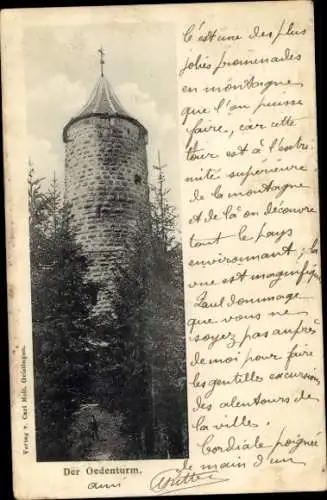 C'est une des plus
jolies promenades
en montagne
que l'on puisse
faire, car cette
tour est à l'extré-
mité supérieure
de la montagne
et de là on découvre
tout le pays
environnant, la
vue est magnifique
dommage
que vous ne
soyez pas auprès
de moi pour faire
les gentilles excursions
des alentours de
la ville.
Cordiale poignée
de main d'un
ami
Der Oedenturm.
Verlag v. Carl Moll, Geislingen.